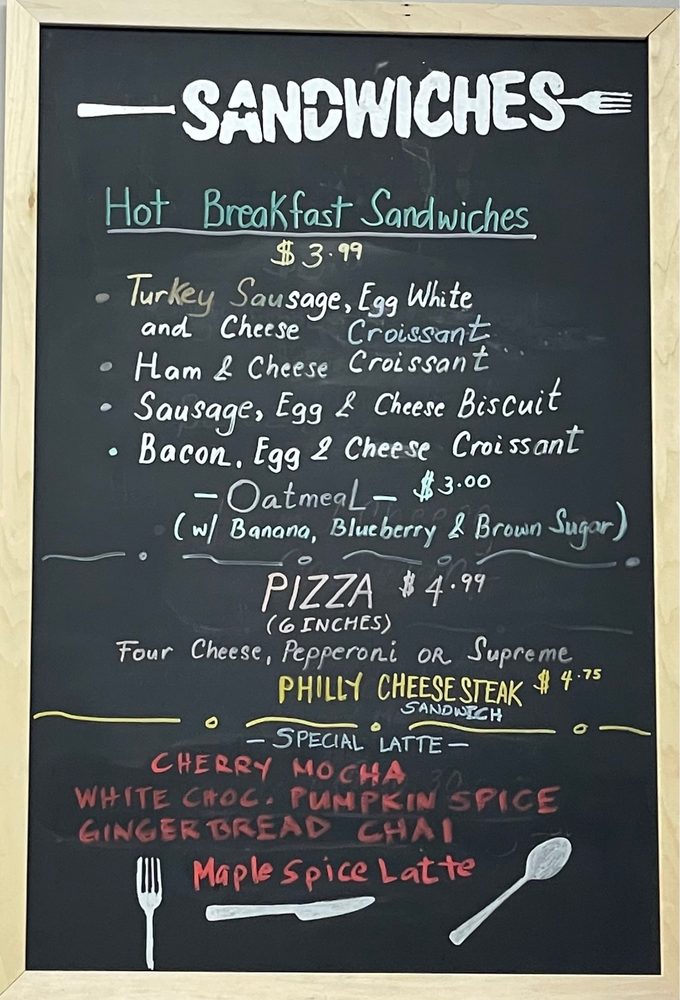 SANDWICHES
Hot Breakfast Sandwiches
$3.99
• Turkey Sausage, Egg White
and Cheese Croissant
• Ham & Cheese Croissant
• Sausage, Egg & Cheese Biscuit
• Bacon, Egg & Cheese Croissant
- Oatmeal - $3.00
(w/ Banana, Blueberry & Brown Sugar)
PIZZA $4.99
(6 INCHES)
Four Cheese, Pepperoni OR Supreme
PHILLY CHEESESTEAK $4.75
SANDWICH
- SPECIAL LATTE -
CHERRY MOCHA
WHITE CHOC. PUMPKIN SPICE
GINGERBREAD CHAI
Maple Spice Latte